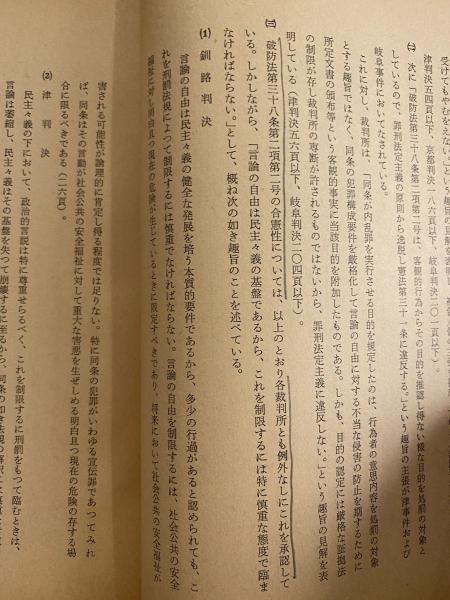 受けてもやむをえない」という趣旨の見解を
津判決五四頁以下、京都判決一八六頁以下、岐阜判決二〇二頁以下）。
㈡ 次に「破防法第三十八条第二項第二号は、客観的行為からその目的を推認し得ない様な目的を処罰の対象と
しているので、罪刑法定主義の原則から逸脱し憲法第三十一条に違反する。」という趣旨の主張が津事件および
岐阜事件においてなされている。
これに対し、裁判所は、「同条が内乱罪を実行させる目的を規定したのは、行為者の意思内容を処罰の対象
とする趣旨ではなく、同条の犯罪構成要件を厳格化して言論の自由に対する不当な侵害の防止を期するために
所定文書の頒布等という客観的事実に当該目的を附加したものである。しかも、目的の認定には厳格な証拠法
の制限が存し裁判所の専断が許されるものではないから、罪刑法定主義に違反しない。」という趣旨の見解を表
明している（津判決五六頁以下、岐阜判決二〇四頁以下）。
㈢ 破防法第三十八条第二項第二号の合憲性については、以上のとおり各裁判所とも例外なしにこれを承認して
いる。しかしながら、「言論の自由は民主々義の基盤であるから、これを制限するには特に慎重な態度で臨ま
なければならない。」として、概ね次の如き趣旨のことを述べている。
(1) 釧路判決
言論の自由は民主々義の健全な発展を培う本質的要件であるから、多少の行過があると認められても、こ
れを刑罰法規によつて制限するには慎重でなければならない。言論の自由を制限するには、社会公共の安全
福祉に対し明白且つ現在の危険が生じているときに限定すべきであり、将来において社会公共の安全福祉が
害される可能性が論理的に肯定し得る程度では足りない。特に同条の犯罪がいわゆる宣伝罪であつてみれ
ば、同条はその言動が社会公共の安全福祉に対して重大な害悪を生ぜしめる明白且つ現在の危険の存する場
合に限るべきである（二六頁）。
(2) 津判決
民主々義の下において、政治的言説は特に尊重せらるべく、これを制限するに刑罰をもつて臨むときは、
言論は萎縮し、民主々義はその基盤を失つて崩壊するに至るから、同条の如き法規の解釈